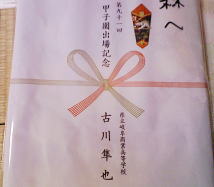 森へ
第九十一回
甲子園出場記念
県立岐阜商業高等学校
古川隼也